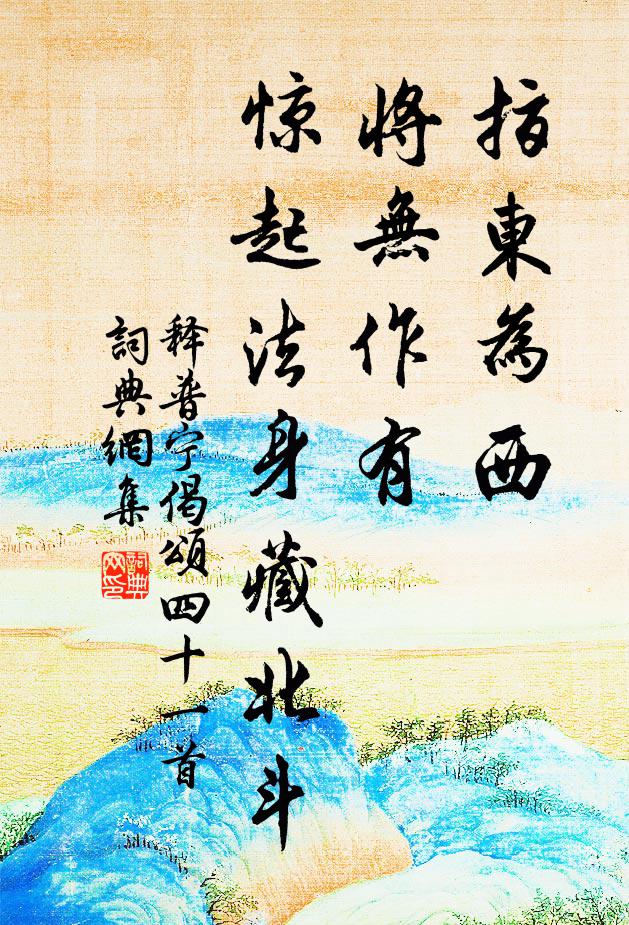 指東為西
將無作有
惊起法身藏北斗
释普宁偈頌四十一首
詞典網集
詞典
网印